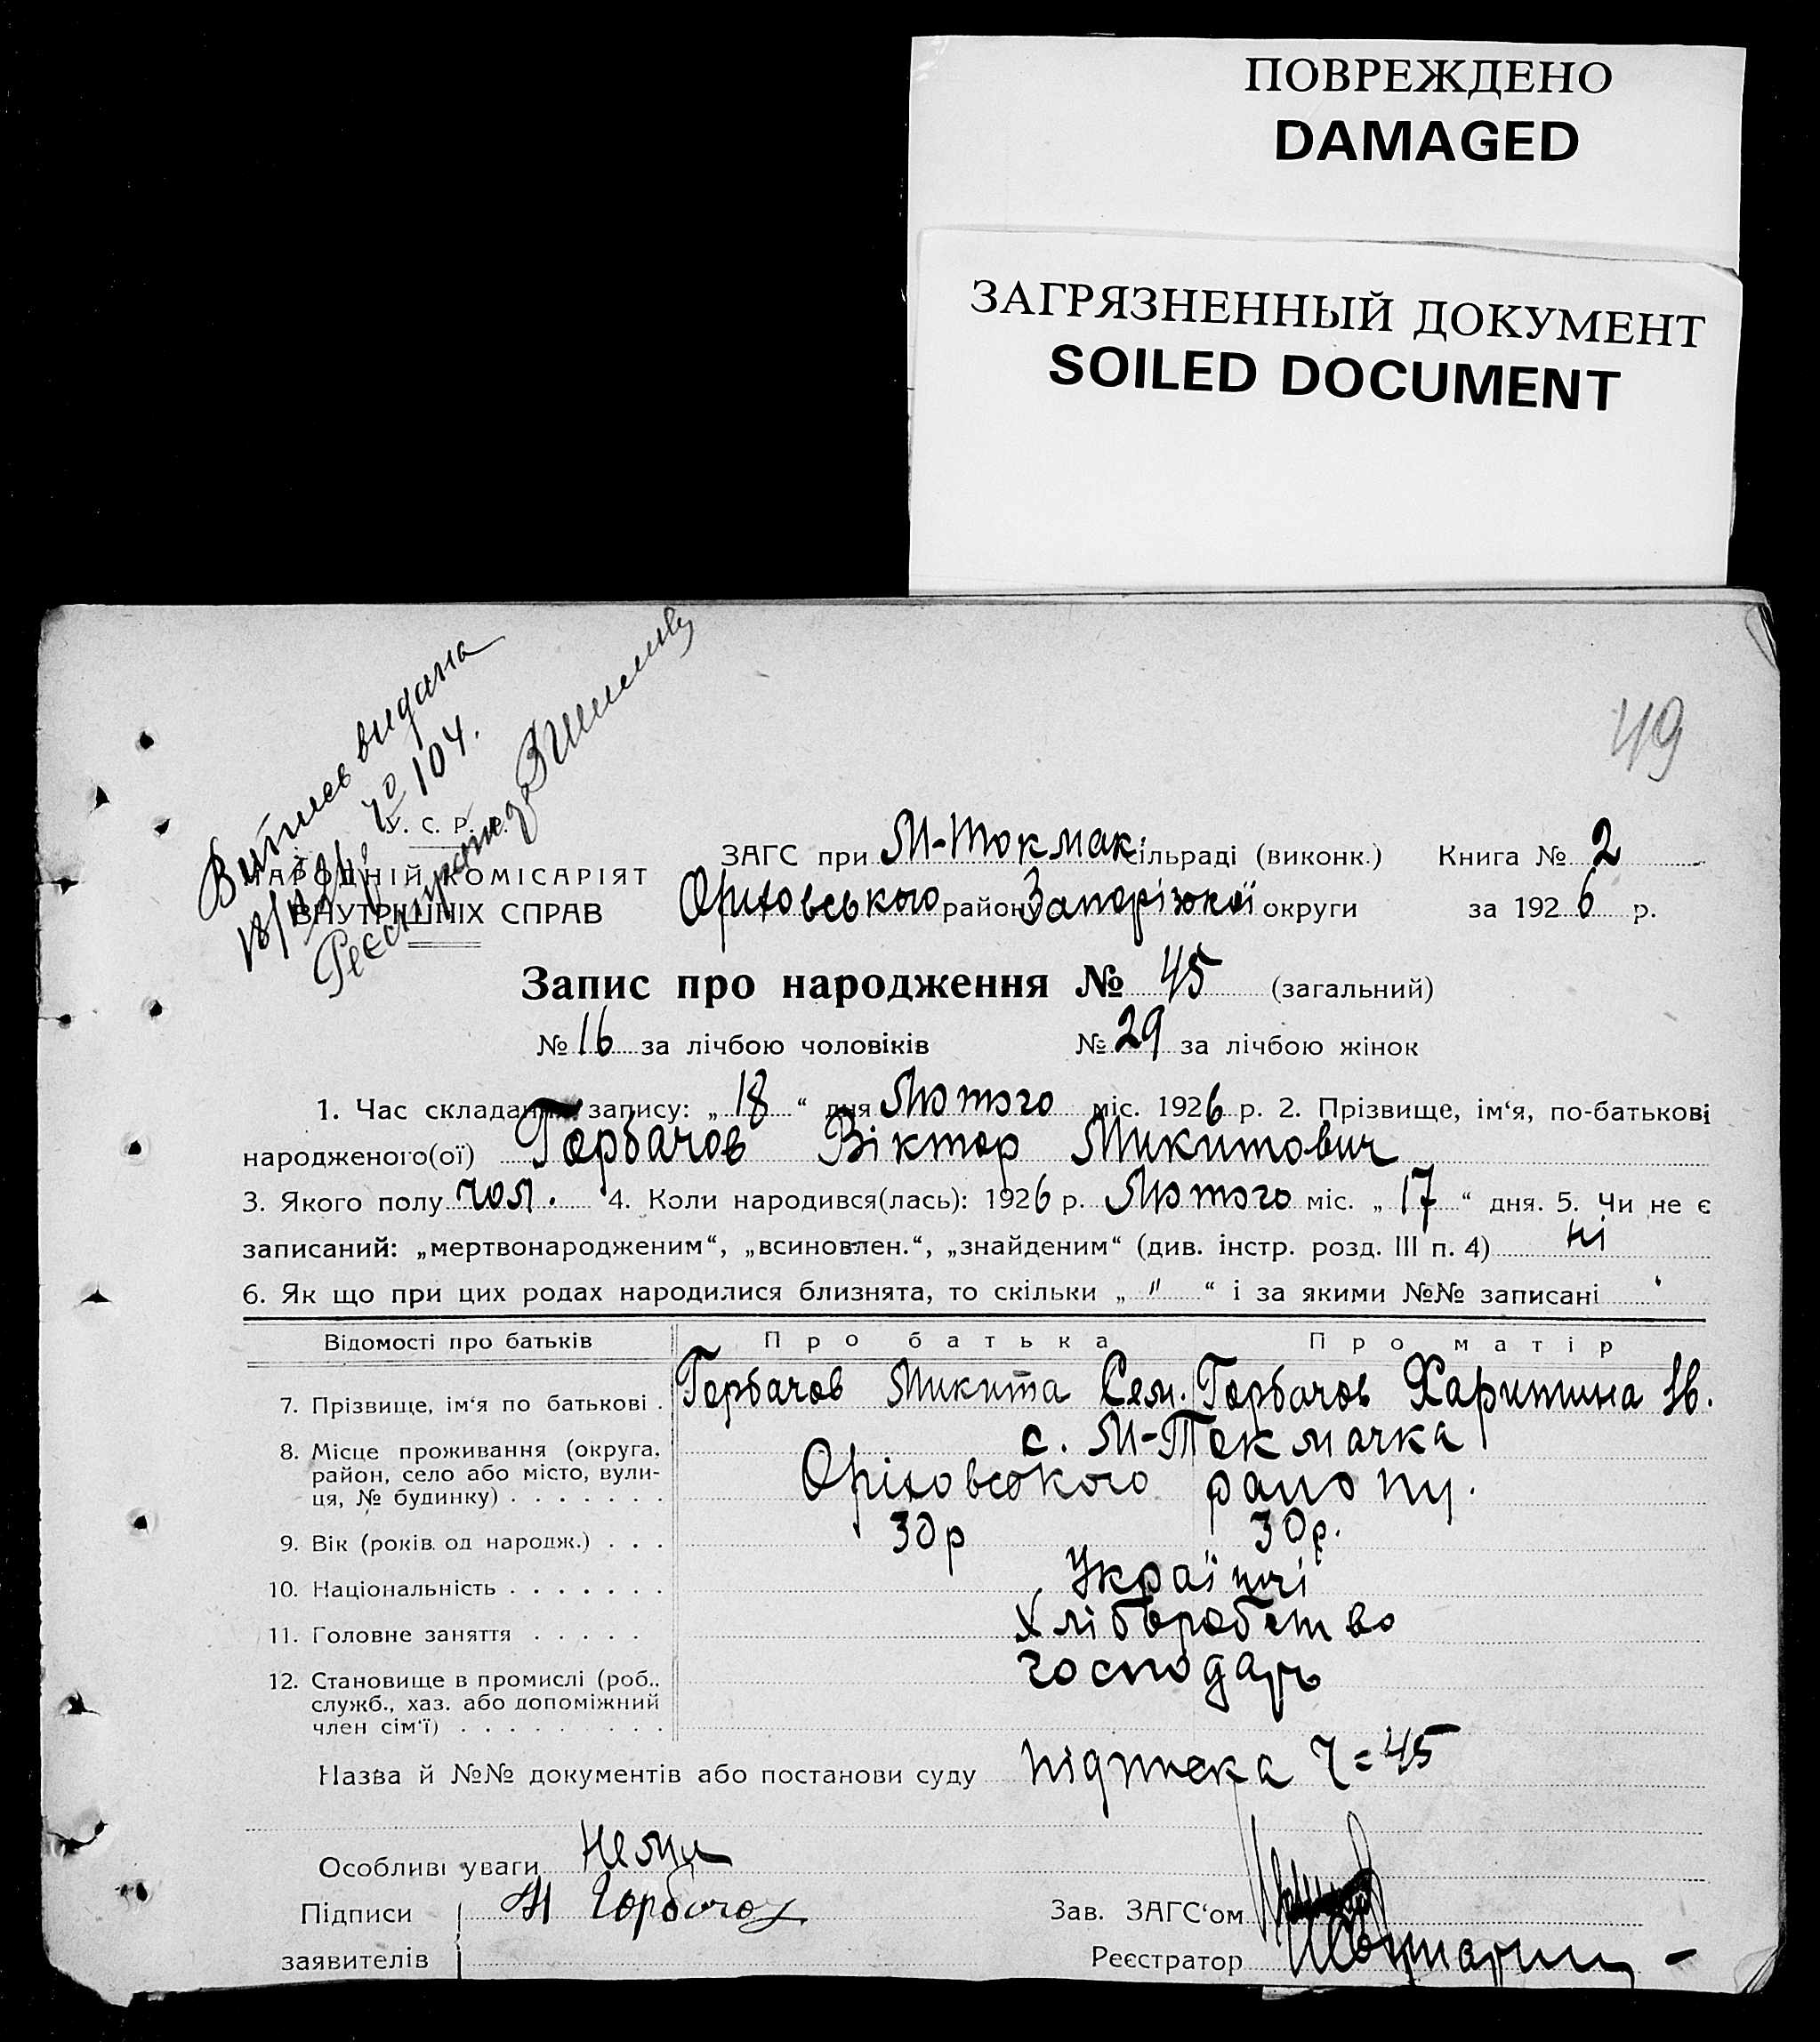 ПОВРЕЖДЕНО
DAMAGED
ЗАГРЯЗНЕННЫЙ ДОКУМЕНТ
SOILED DOCUMENT
49
Витись видана
ч° 104.
Реєстратор
У. С. Р. Р.
НАРОДНІЙ КОМІСАРІЯТ
ВНУТРІШНІХ СПРАВ
ЗАГС при М-Токмак. сільраді (виконк.) Книга № 2
Оріховського району Запорізької округи за 1926 р.
Запис про народження № 45 (загальний)
№ 16 за лічбою чоловіків № 29 за лічбою жінок
1. Час складання запису: „18“ дня Лютого міс. 1926 р. 2. Прізвище, ім‘я, по-батькові
народженого(ої) Горбачов Віктор Микитович
3. Якого полу чол. 4. Коли народився(лась): 1926 р. Лютого міс. „17“ дня. 5. Чи не є
записаний: „мертвонародженим“, „всиновлен.“, „знайденим“ (див. інстр. розд. III п. 4) ні
6. Як що при цих родах народилися близнята, то скільки „ " “ і за якими №№ записані
Відомості про батьків Про батька Про матір
7. Прізвище, ім‘я по батькові . Горбачов Микита Сем. Горбачов Харитина Ів.
8. Місце проживання (округа, с. М-Токмачка
район, село або місто, вули- Оріховського району.
ця, № будинку) . . . . . . .
9. Вік (років од народж.) . . . 30р 30р.
10. Національність . . . . . . . Україньці
11. Головне заняття . . . . . Хліборобство
12. Становище в промислі (роб., господарь
служб., хаз. або допоміжний
член сім‘ї) . . . . . . . . .
Назва й №№ документів або постанови суду підтека Ч=45
Особливі уваги нема
Підписи М Горбачов Зав. ЗАГС‘ом
заявителів Реєстратор